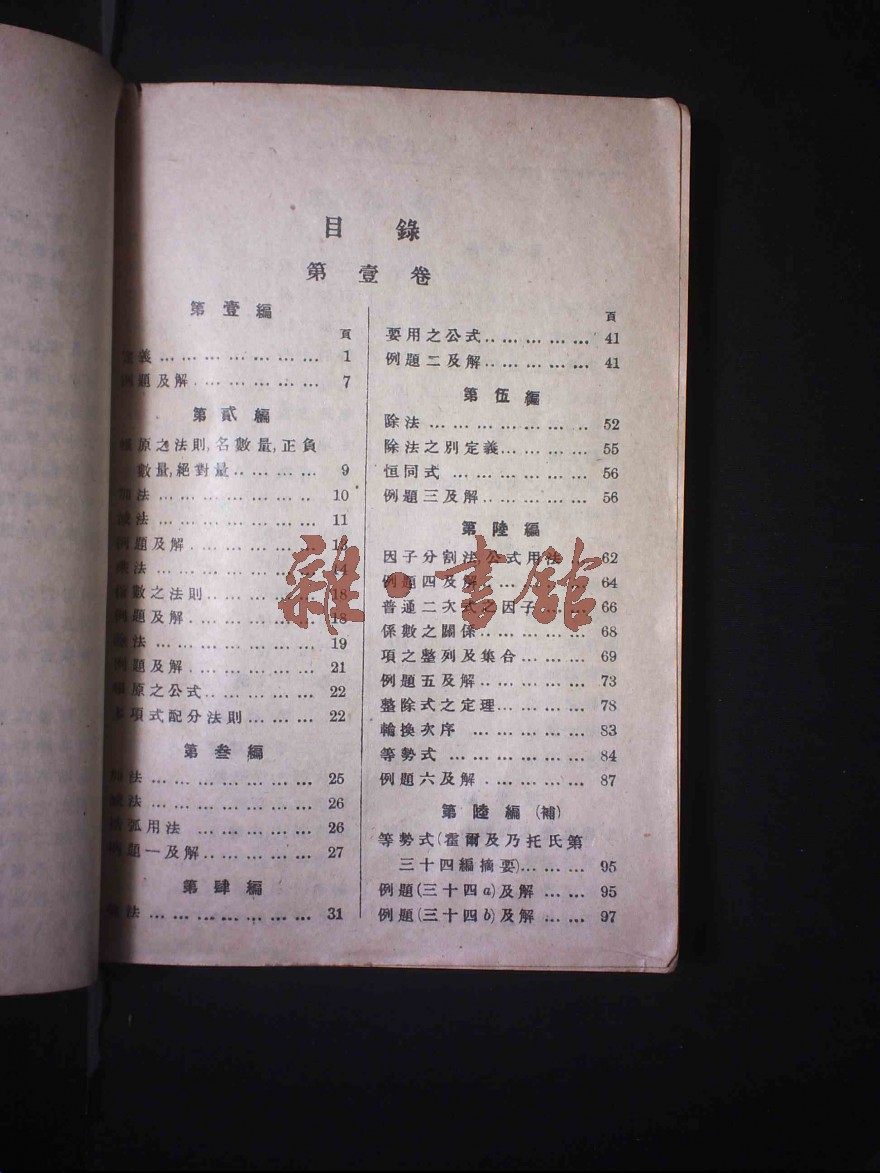 目錄
第壹卷
第壹編
頁
定義 … … … … … … … 1
例題及解 … … … … … … 7
第貳編
原之法則,名數量,正負
數量,絕對量 … … … … 9
法 … … … … … … … 10
減法 … … … … … … … 11
例題及解 … … … … … … 13
法 … … … … … … … 14
指數之法則 … … … … … 18
例題及解 … … … … … … 18
法 … … … … … … … 19
例題及解 … … … … … … 21
原之公式 … … … … … 22
多項式配分法則 … … … 22
第叁編
法 … … … … … … … 25
減法 … … … … … … … 26
括弧用法 … … … … … 26
例題一及解 … … … … … 27
第肆編
法 … … … … … … … 31
頁
要用之公式 … … … … … 41
例題二及解 … … … … … 41
第伍編
除法 … … … … … … … 52
除法之別定義 … … … … 55
恒同式 … … … … … … 56
例題三及解 … … … … … 56
第陸編
因子分割法,公式用法 … 62
例題四及解 … … … … … 64
普通二次式之因子 … … 66
係數之關係 … … … … … 68
項之整列及集合 … … … 69
例題五及解 … … … … … 73
整除式之定理 … … … … 78
輪換次序 … … … … … 83
等勢式 … … … … … … 84
例題六及解 … … … … … 87
第陸編(補)
等勢式(霍爾及乃托氏第
三十四編摘要) … … … 95
例題(三十四a)及解 … … 95
例題(三十四b)及解 … … 97
雜·書館